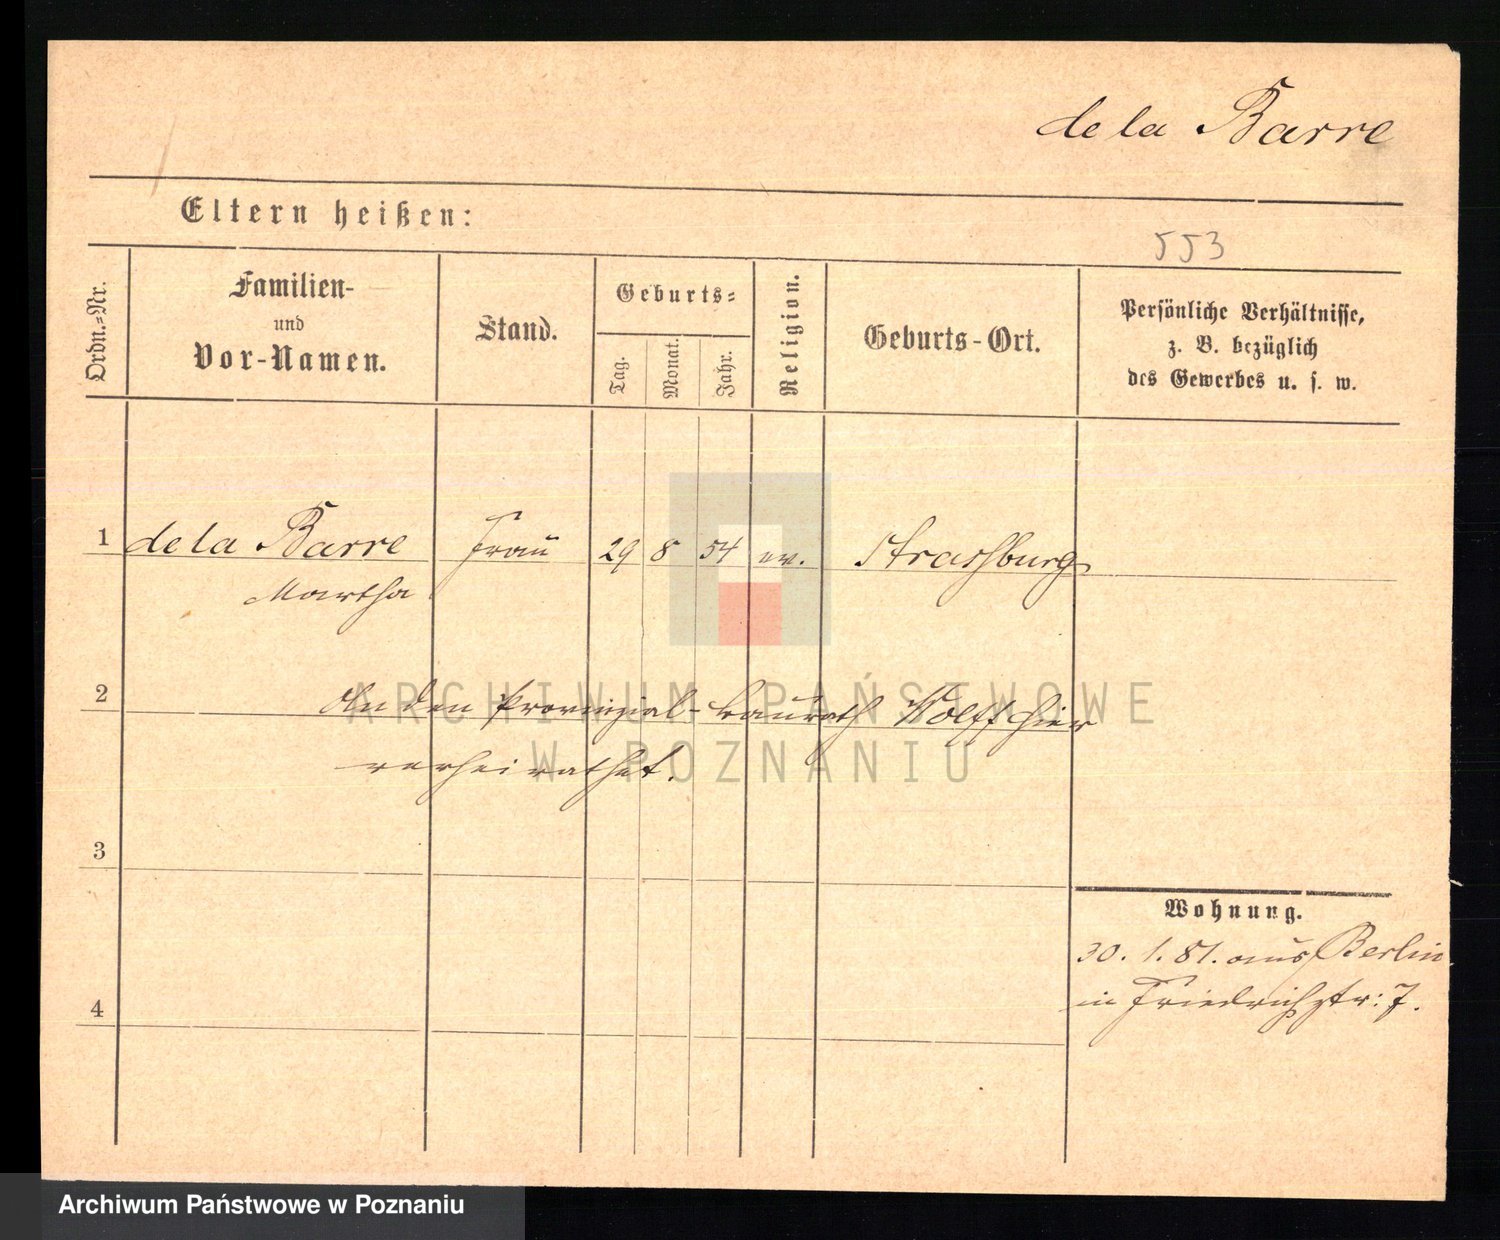 de la Barre
Eltern heißen:
553
Ordn.=Nr.
Familien-
und
Vor-Namen.
Stand.
Geburts=
Tag.
Monat.
Jahr.
Religion.
Geburts-Ort.
Persönliche Verhältnisse,
z. B. bezüglich
des Gewerbes u. s. w.
1 de la Barre Frau 29 8 54 ev. Strassburg
Martha
2 An den Provinzial-Baurath Wolff hier
verheirathet.
ARCHIWUM PAŃSTWOWE
W POZNANIU
3
Wohnung.
30. 1. 81. aus Berlin
in Friedrichstr: 7.
4
Archiwum Państwowe w Poznaniu